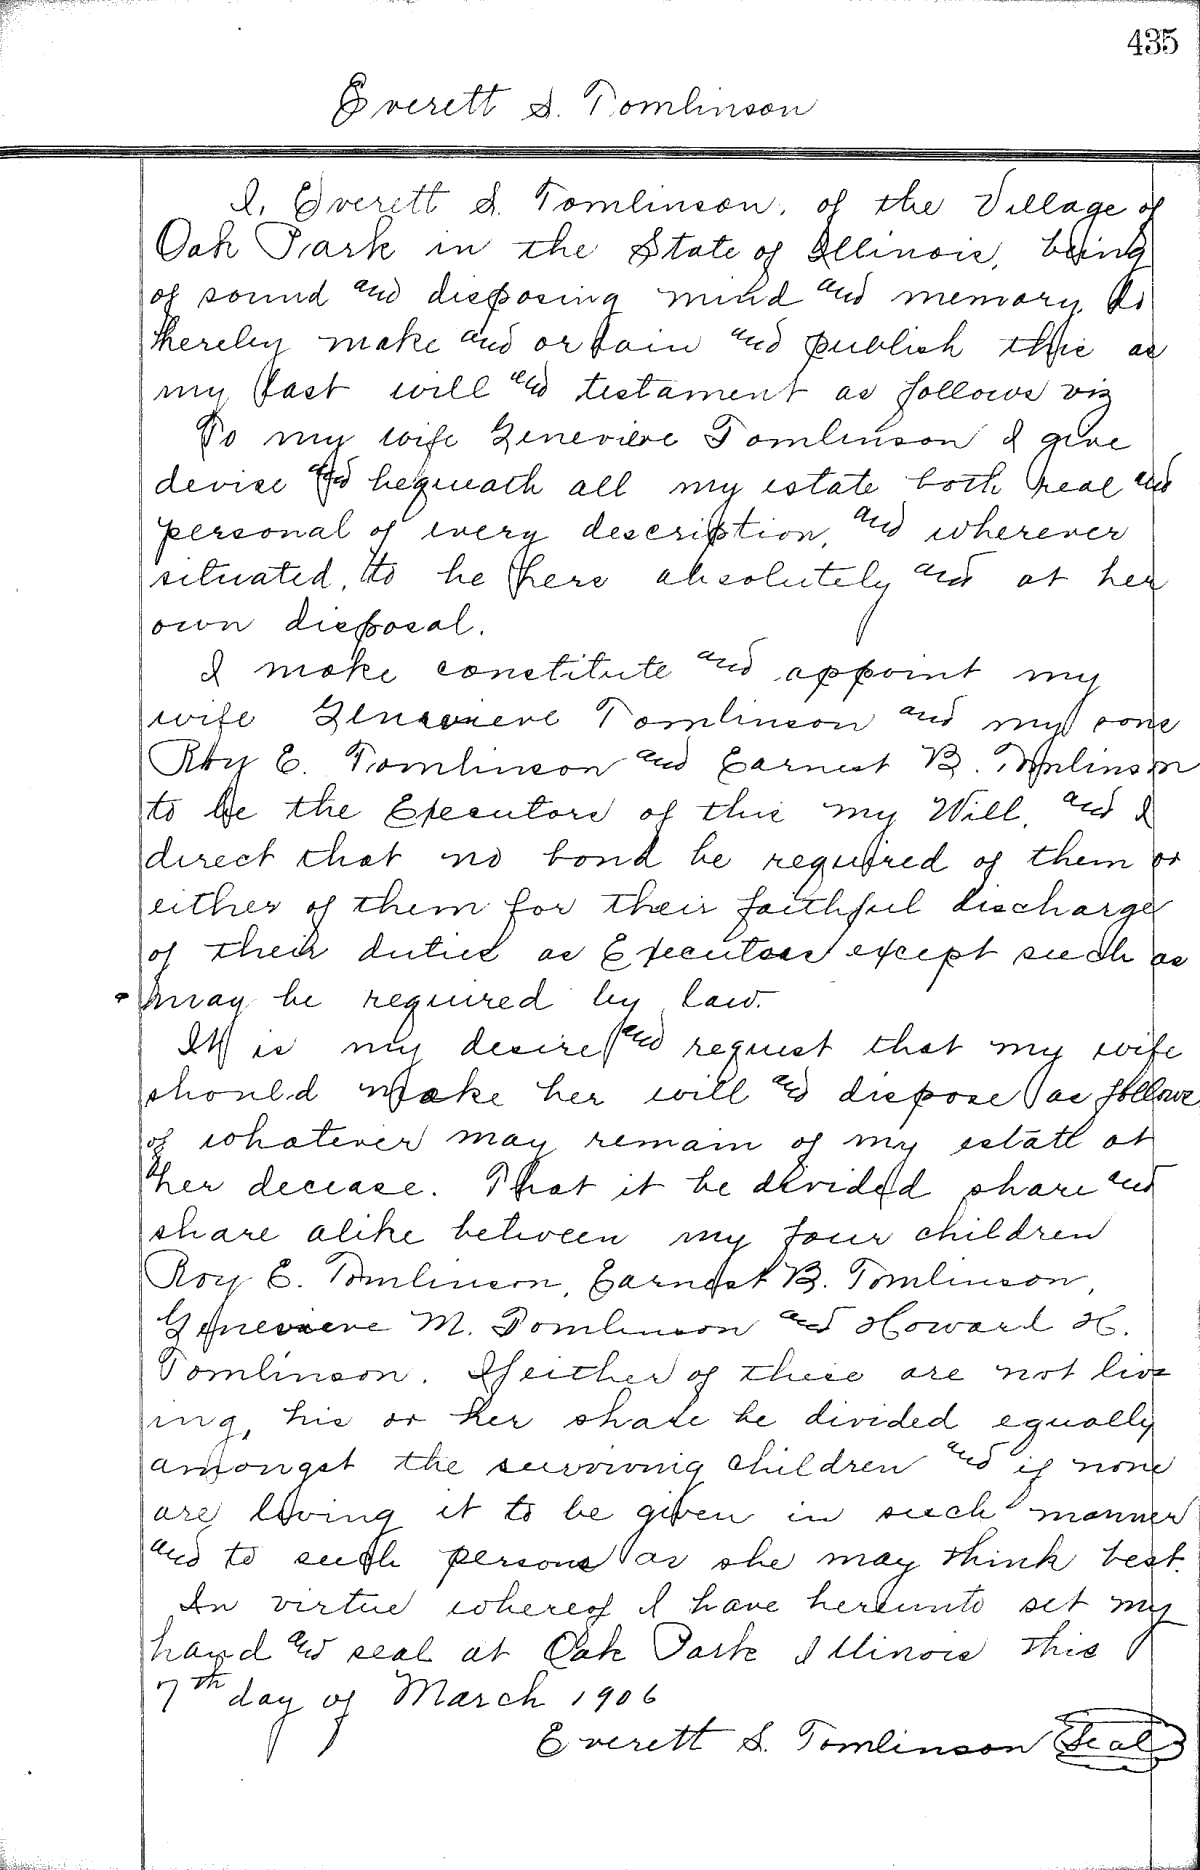 435
Everett S. Tomlinson
I, Everett S. Tomlinson, of the Village of
Oak Park in the State of Illinois, being
of sound and disposing mind and memory, do
hereby make and ordain and publish this as
my last will and testament as follows viz
To my wife Genevieve Tomlinson I give
devise and bequeath all my estate both real and
personal of every description, and wherever
situated, to be hers absolutely and at her
own disposal.
I make constitute and appoint my
wife Genevieve Tomlinson and my sons
Roy E. Tomlinson and Earnest B. Tomlinson
to be the Executors of this my Will, and I
direct that no bond be required of them or
either of them for their faithful discharge
of their duties as Executors except such as
may be required by law.
It is my desire and request that my wife
should make her will and dispose as follows
of whatever may remain of my estate at
her decease. That it be divided share and
share alike between my four children
Roy E. Tomlinson, Earnest B. Tomlinson,
Genevieve M. Tomlinson and Howard H.
Tomlinson. If either of these are not liv
ing, his or her share be divided equally
amongst the surviving children and if none
are living it to be given in such manner
and to such persons as she may think best.
In virtue whereof I have hereunto set my
hand and seal at Oak Park Illinois this
7th day of March 1906
Everett S. Tomlinson Seal